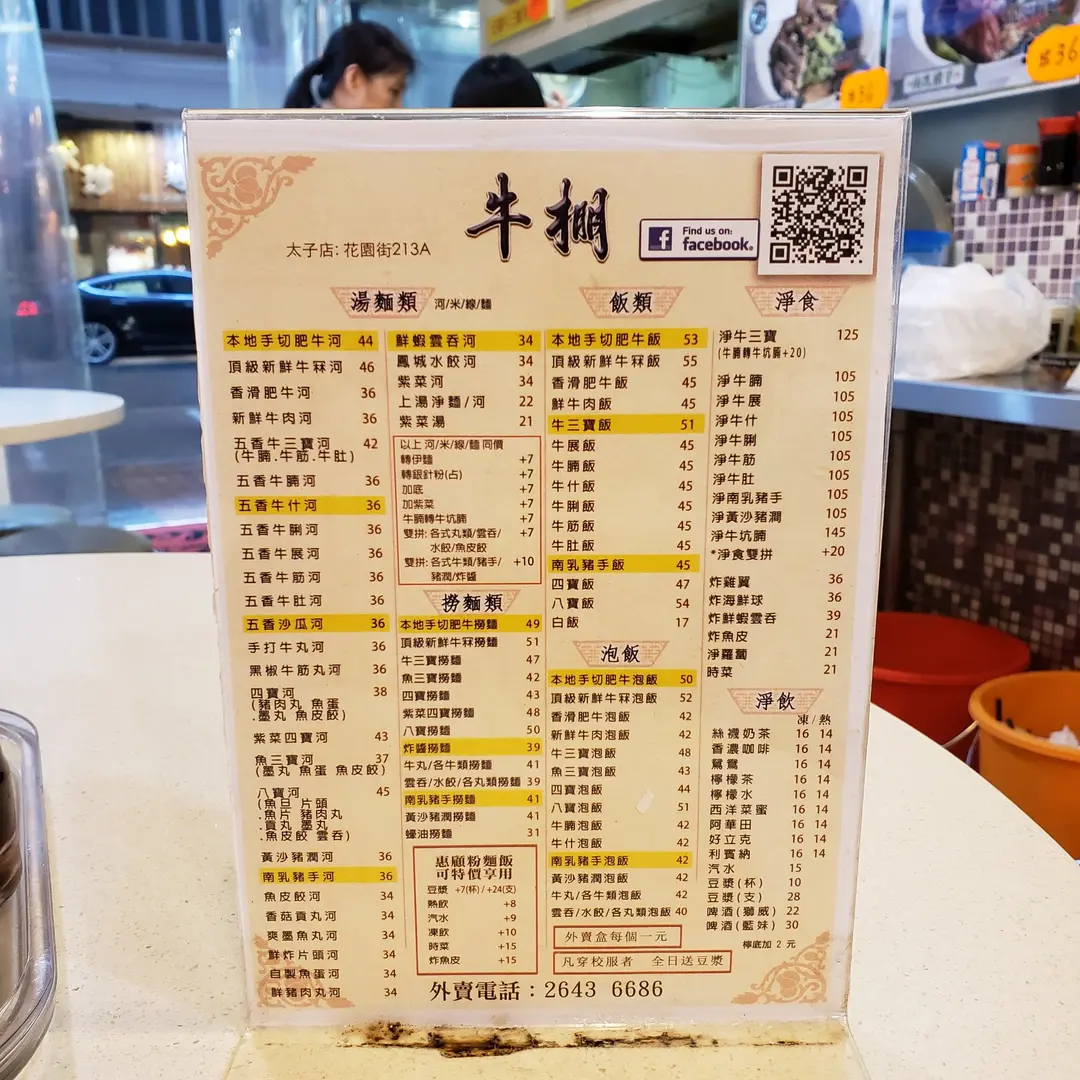 牛棚
太子店: 花園街213A
Find us on:
facebook.
湯麵類 河/米/線/麵
本地手切肥牛河 44
頂級新鮮牛冧河 46
香滑肥牛河 36
新鮮牛肉河 36
五香牛三寶河 42
(牛腩.牛筋.牛肚)
五香牛腩河 36
五香牛什河 36
五香牛脷河 36
五香牛展河 36
五香牛筋河 36
五香牛肚河 36
五香沙瓜河 36
手打牛丸河 36
黑椒牛筋丸河 36
四寶河 38
(豬肉丸 魚蛋
.墨丸 魚皮餃)
紫菜四寶河 43
魚三寶河 37
(墨丸 魚蛋 魚皮餃)
八寶河 45
(魚旦 片頭
.魚片 豬肉丸
.貢丸 墨丸
.魚皮餃 雲吞)
黃沙豬潤河 36
南乳豬手河 36
魚皮餃河 34
香菇貢丸河 34
爽墨魚丸河 34
鮮炸片頭河 34
自製魚蛋河 34
鮮豬肉丸河 34
鮮蝦雲吞河 34
鳳城水餃河 34
紫菜河 34
上湯淨麵/河 22
紫菜湯 21
以上 河/米/線/麵 同價
轉伊麵 +7
轉銀針粉(占) +7
加底 +7
加紫菜 +7
牛腩轉牛坑腩 +7
雙拼: 各式丸類/雲吞/ +7
水餃/魚皮餃
雙拼: 各式牛類/豬手/ +10
豬潤/炸醬
撈麵類
本地手切肥牛撈麵 49
頂級新鮮牛冧撈麵 51
牛三寶撈麵 47
魚三寶撈麵 42
四寶撈麵 43
紫菜四寶撈麵 48
八寶撈麵 50
炸醬撈麵 39
牛丸/各牛類撈麵 41
雲吞/水餃/各丸類撈麵 39
南乳豬手撈麵 41
黃沙豬潤撈麵 41
蠔油撈麵 31
惠顧粉麵飯
可特價享用
豆漿 +7(杯) / +24(支)
熱飲 +8
汽水 +9
凍飲 +10
時菜 +15
炸魚皮 +15
飯類
本地手切肥牛飯 53
頂級新鮮牛冧飯 55
香滑肥牛飯 45
鮮牛肉飯 45
牛三寶飯 51
牛展飯 45
牛腩飯 45
牛什飯 45
牛脷飯 45
牛筋飯 45
牛肚飯 45
南乳豬手飯 45
四寶飯 47
八寶飯 54
白飯 17
泡飯
本地手切肥牛泡飯 50
頂級新鮮牛冧泡飯 52
香滑肥牛泡飯 42
新鮮牛肉泡飯 42
牛三寶泡飯 48
魚三寶泡飯 43
四寶泡飯 44
八寶泡飯 51
牛腩泡飯 42
牛什泡飯 42
南乳豬手泡飯 42
黃沙豬潤泡飯 42
牛丸/各牛類泡飯 42
雲吞/水餃/各丸類泡飯 40
外賣盒每個一元
凡穿校服者 全日送豆漿
淨食
淨牛三寶 125
(牛腩轉牛坑腩+20)
淨牛腩 105
淨牛展 105
淨牛什 105
淨牛脷 105
淨牛筋 105
淨牛肚 105
淨南乳豬手 105
淨黃沙豬潤 105
淨牛坑腩 145
*淨食雙拼 +20
炸雞翼 36
炸海鮮球 36
炸鮮蝦雲吞 39
炸魚皮 21
淨蘿蔔 21
時菜 21
淨飲
凍/熱
絲襪奶茶 16 14
香濃咖啡 16 14
鴛鴦 16 14
檸檬茶 16 14
檸檬水 16 14
西洋菜蜜 16 14
阿華田 16 14
好立克 16 14
利賓納 16 14
汽水 15
豆漿(杯) 10
豆漿(支) 28
啤酒(獅威) 22
啤酒(藍妹) 30
檸底加 2 元
外賣電話：2643 6686